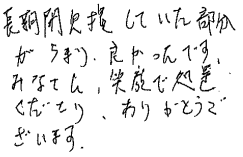 長期間欠損していた部分
が
、良かったです。
みなさん、笑顔で処置
くださり、ありがとうご
ざいます。